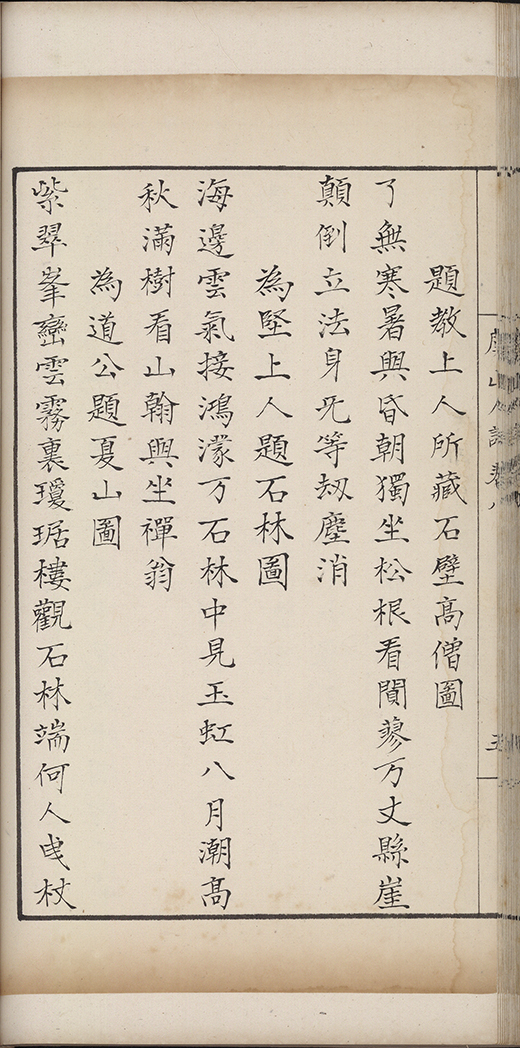 題教上人所藏石壁高僧圖
了無寒暑與昏朝獨坐松根看閴蓼万丈縣崖
顛倒立法身旡等刼塵消
為堅上人題石林圖
海邊雲氣接鴻濛万石林中見玉虹八月潮高
秋滿樹看山翰與坐禪翁
為道公題夏山圖
紫翠峯巒雲霧裏瓊琚樓觀石林端何人曳杖